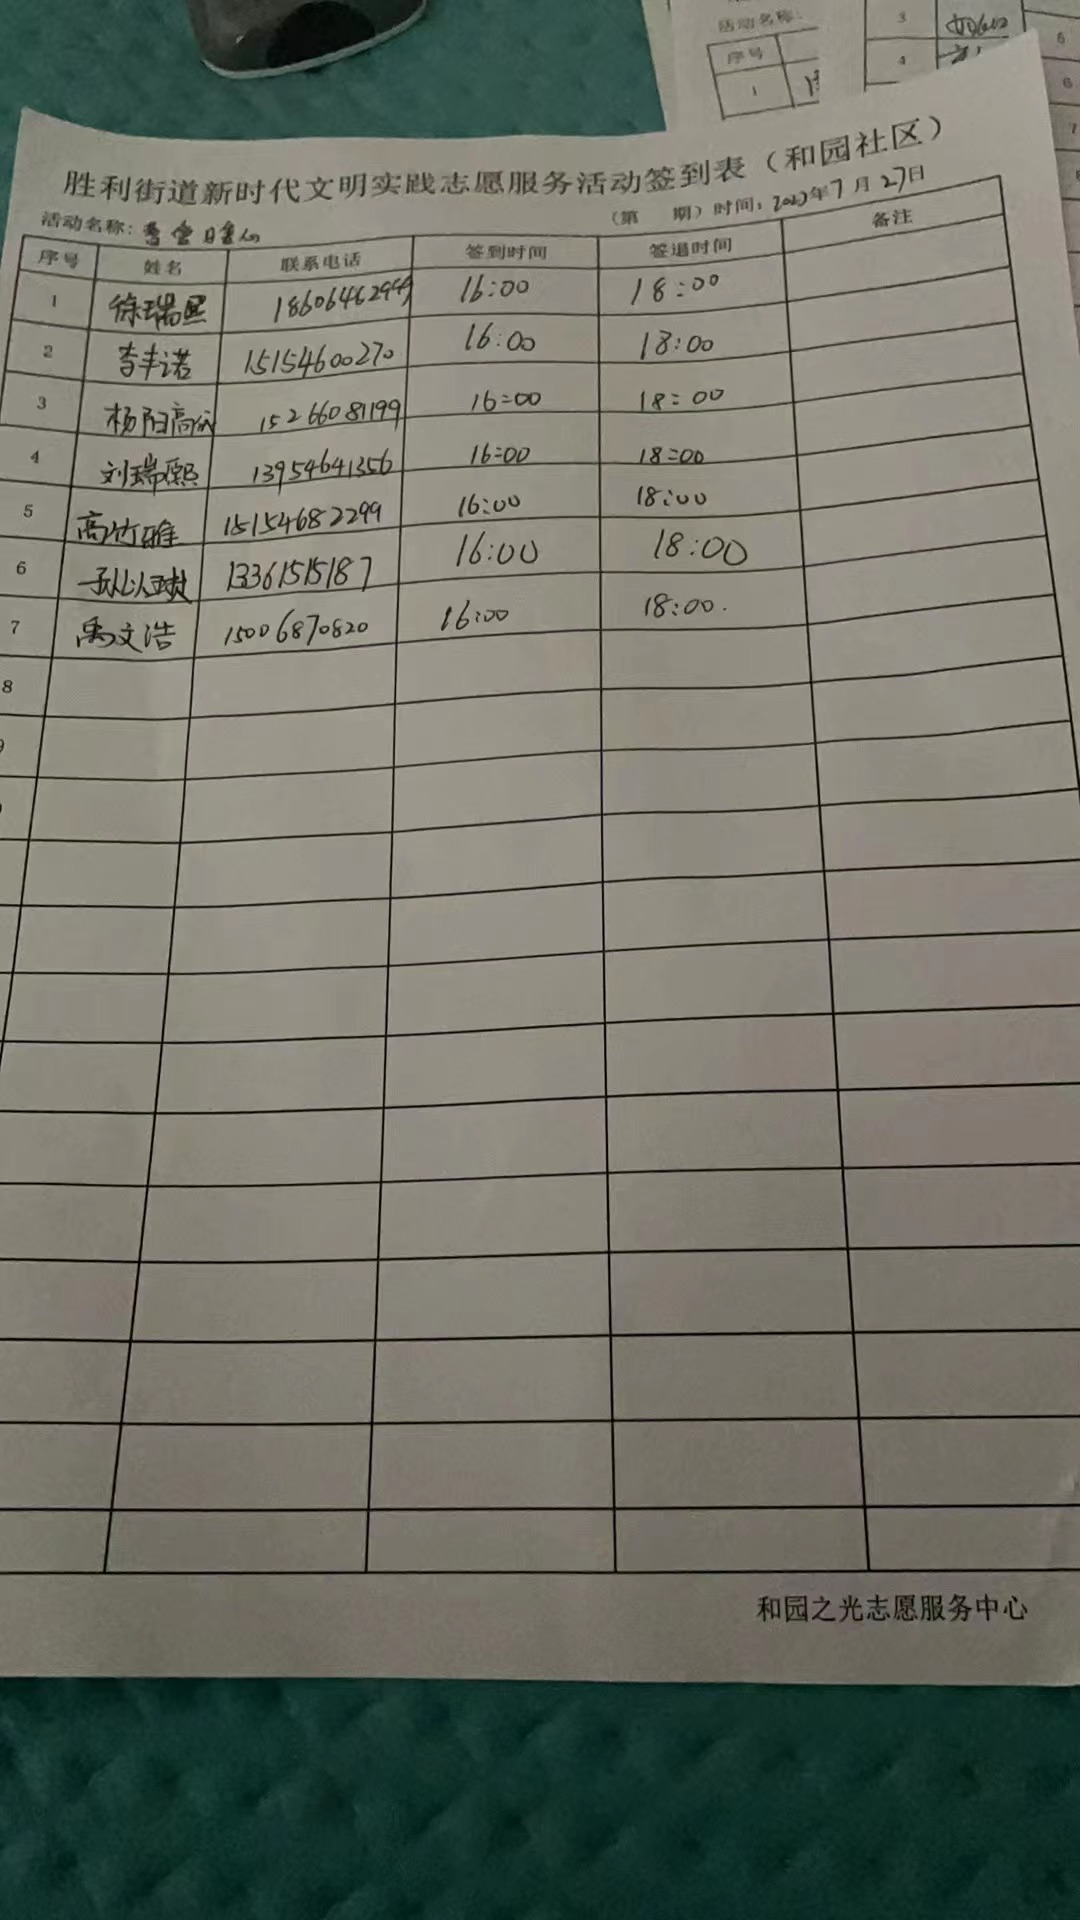 活动名称:
序号
1
3
4
5
6
7
胜利街道新时代文明实践志愿服务活动签到表（和园社区）
活动名称: （第 期）时间: 年7月27日
序号 姓名 联系电话 签到时间 签退时间 备注
1 徐瑞熙 18606462949 16:00 18:00
2 李丰诺 15154600270 16:00 18:00
3 杨阳高 15266081199 16:00 18:00
4 刘瑞熙 13954641356 16:00 18:00
5 高竹雅 15154682299 16:00 18:00
6 13361515187 16:00 18:00
7 禹文浩 15006870820 16:00 18:00.
8
和园之光志愿服务中心